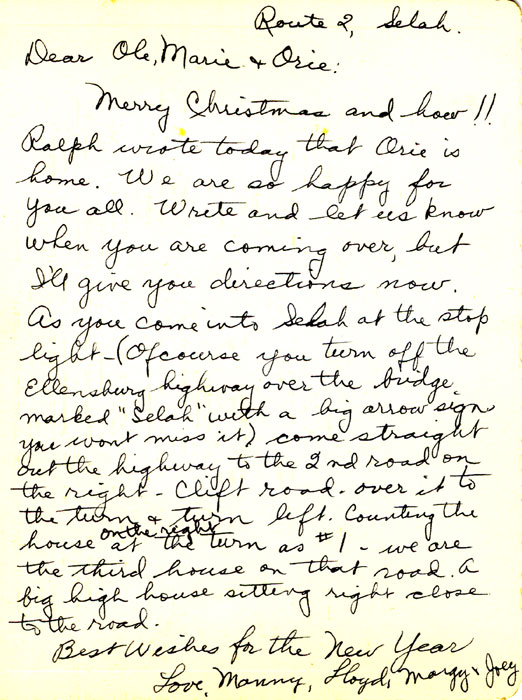 Route 2, Selah.
Dear Ole, Marie & Orie:
Merry Christmas and how!!
Ralph wrote today that Orie is
home. We are so happy for
you all. Write and let us know
when you are coming over, but
I'll give you directions now.
As you come into Selah at the stop
light - (Ofcourse you turn off the
Ellensburg highway over the bridge
marked "Selah" with a big arrow sign
you wont miss it) come straight
out the highway to the 2nd road on
the right - Clift road - over it to
the turn & turn left. Counting the
house on the right at the turn as #1 - we are
the third house on that road. A
big high house sitting right close
to the road.
Best Wishes for the New Year
Love, Manny, Lloyd, Margy & Joey